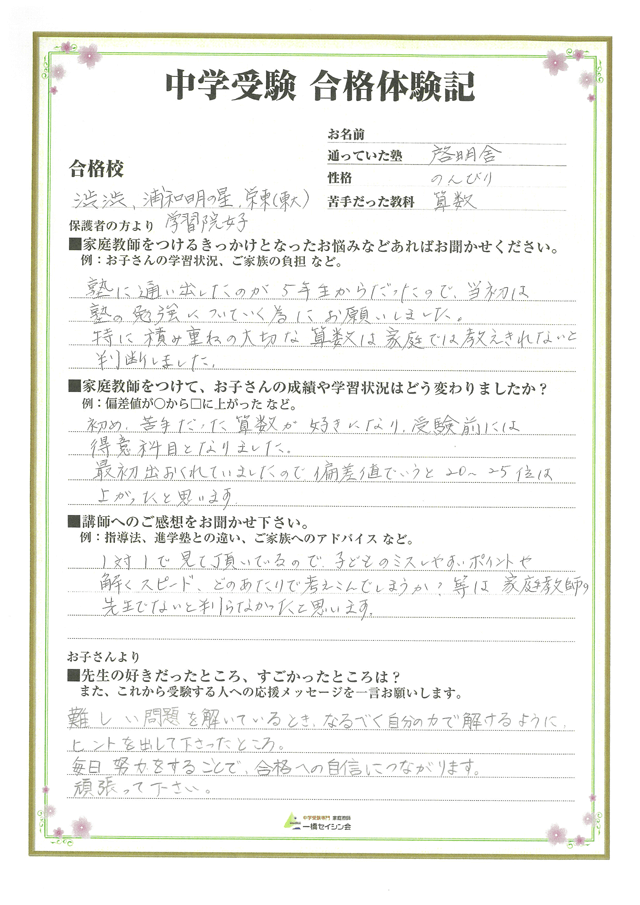 中学受験 合格体験記
お名前
通っていた塾 啓明舎
合格校
性格 のんびり
渋渋、浦和明の星、栄東(東大)
苦手だった教科 算数
保護者の方より 学習院女子
■家庭教師をつけるきっかけとなったお悩みなどあればお聞かせください。
例：お子さんの学習状況、ご家族の負担 など。
塾に通い出したのが5年生からだったので、当初は
塾の勉強についていく為にお願いしました。
特に積み重ねの大切な算数は家庭では教えきれないと
判断しました。
■家庭教師をつけて、お子さんの成績や学習状況はどう変わりましたか？
例：偏差値が○から□に上がった など。
初め、苦手だった算数が好きになり、受験前には
得意科目となりました。
最初出おくれていましたので偏差値でいうと20～25位は
上がったと思います
■講師へのご感想をお聞かせ下さい。
例：指導法、進学塾との違い、ご家族へのアドバイス など。
1対1で見て頂いているので、子どものミスしやすいポイントや
解くスピード、どのあたりで考えこんでしまうか？等は家庭教師の
先生でないと判らなかったと思います。
お子さんより
■先生の好きだったところ、すごかったところは？
また、これから受験する人への応援メッセージを一言お願いします。
難しい問題を解いているとき、なるべく自分の力で解けるように、
ヒントを出して下さったところ。
毎日努力をすることで、合格への自信につながります。
頑張って下さい。
中学受験専門 家庭教師
一橋セイシン会